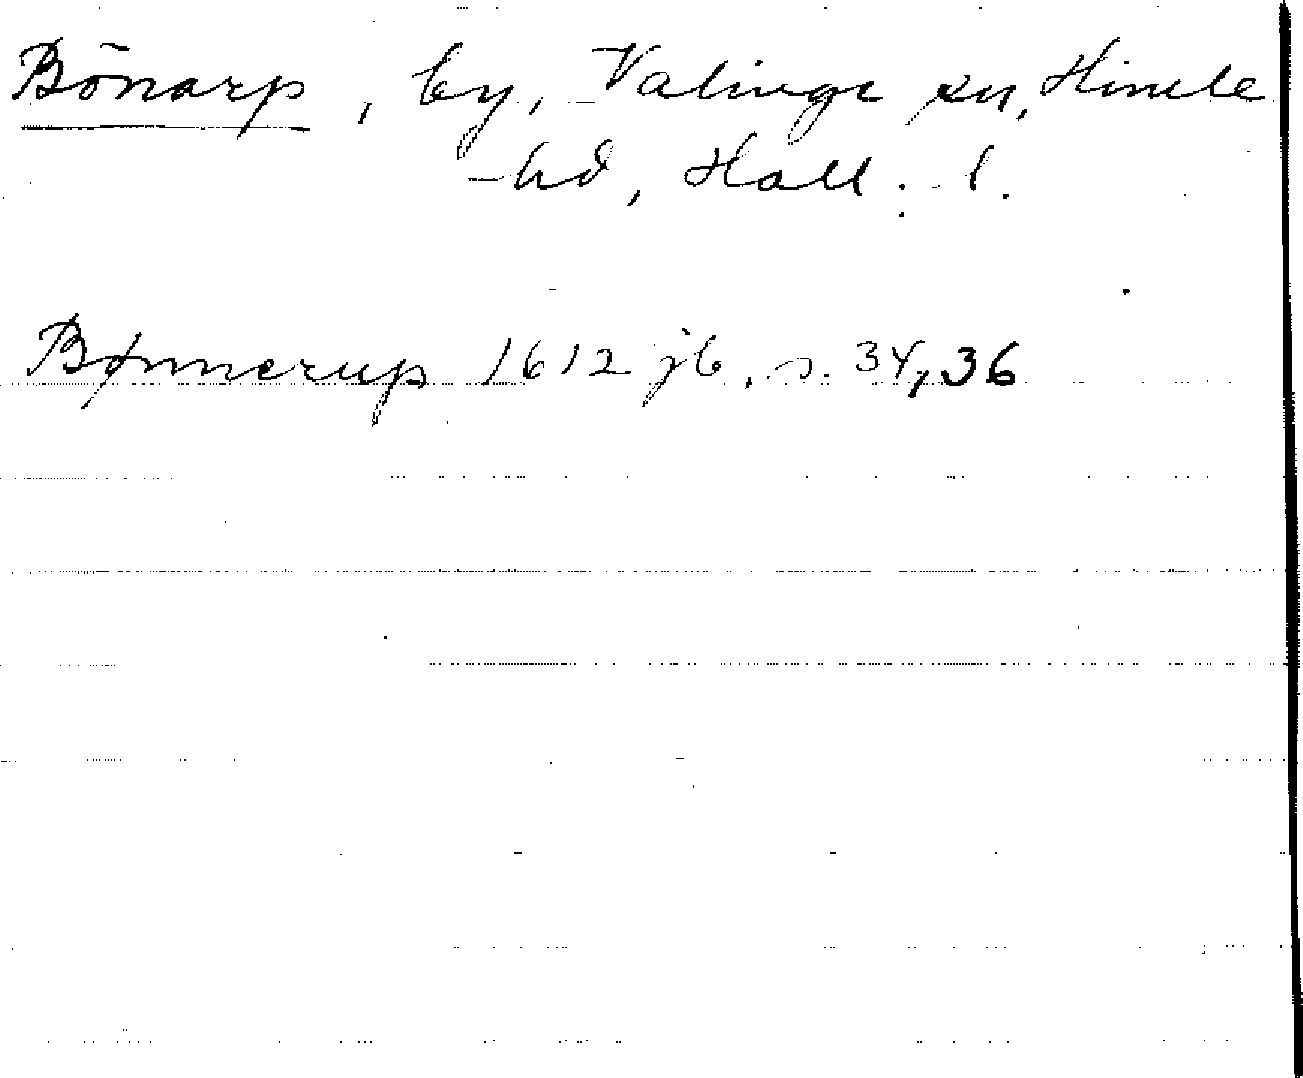 Bönarp, by, Valinge sn, Himle
hd, Hall. l.
Bønnerup 1612 jb, s. 34, 36